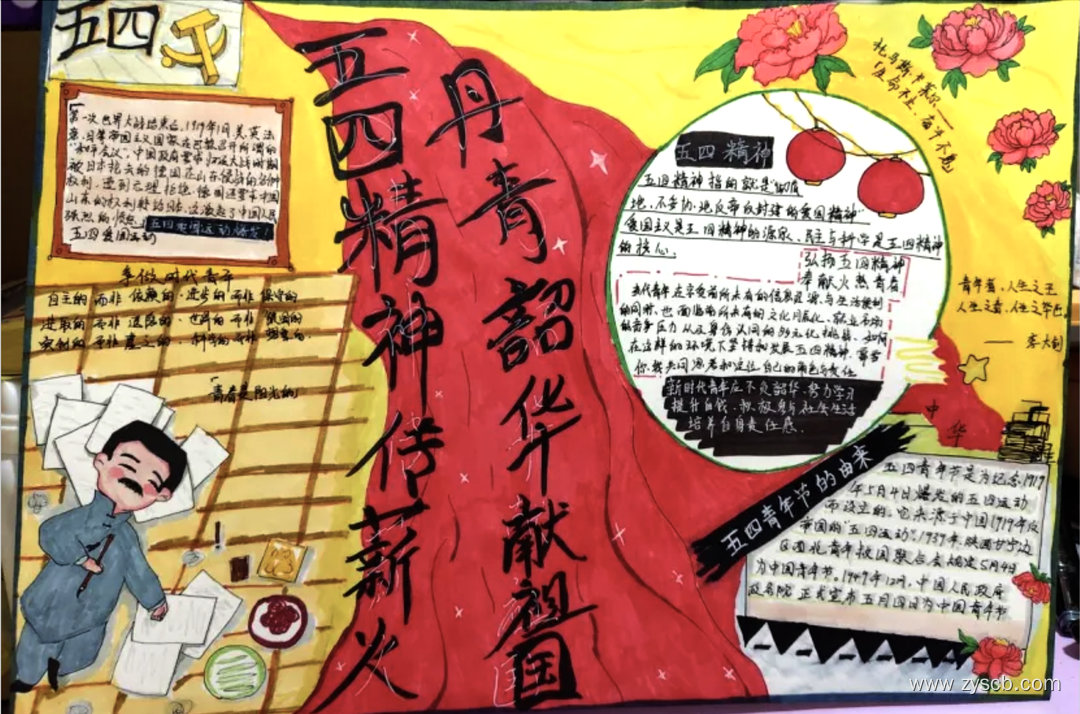 五四
五四精神传薪火
丹青韶华献祖国
第一次世界大战结束后,1919年1月,美英法
意、日等帝国主义国家在巴黎召开所谓的
"和平会议",中国政府要求归还大战时期
被日本抢去的德国在山东侵占的各种
权利,遭到
山东的权利转给日本,这激起了中国人民
强烈的愤怒,五四爱国运动爆发!
五四爱国运动
李做时代青年
自主的而非依赖的·进步的而非保守的
进取的而非退隐的·世界的而非锁国的
实利的而非虚文的·科学的而非想象的
"青春是阳光的
托马斯·卡莱尔——
「生命不止,奋斗不息
五四精神
五四精神指的就是"彻底
地、不妥协地反帝反封建的爱国精神"
爱国主义是五四精神的源泉、民主与科学是五四精神
的核心。
弘扬五四精神
奉献火热青春
当代青年在享受前所未有的信息资源与生活便利
的同时,也面临前所未有的文化多元化、就业市场
的竞争压力以及身份认同的多元化挑战。如何
在这样的环境下坚持和发展五四精神,需要
你我共同思考和定位自己的角色与责任
新时代青年应不负韶华,努力学习
提升自我,积极参与社会生活
培养自身责任感.
青年者,人生之王
人生之春,人生之华也.
——李大钊
中华
五四青年节的由来
五四青年节是为纪念1919
年5月4日爆发的五四运动
而设立的,它来源于中国1919年反
帝国的"五四运动",1939年,陕西甘宁边
区西北青年救国联合会规定5月4日
为中国青年节。1949年12月,中国人民政府
政务院正式宣布五月四日为中国青年节
www.zyscb.com